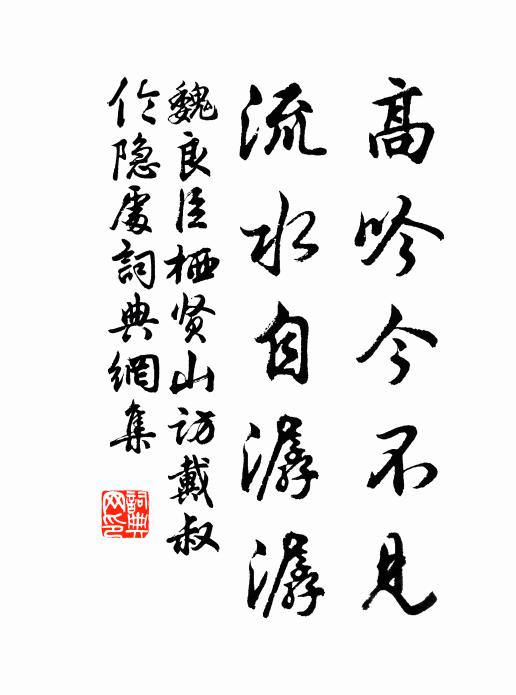 高吟今不見
流水自潺潺
魏良臣栖贤山访戴叔
伦隐處詞典網集
詞典
网印